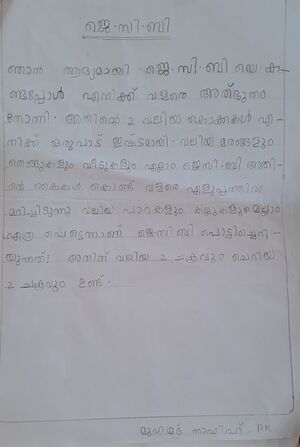 ജെ.സി.ബി
ഞാൻ ആദ്യമായി ജെ.സി.ബി യെ ക-
ണ്ടപ്പോൾ എനിക്ക് വളരെ അത്ഭുതം
തോന്നി. അതിന്റെ 2 വലിയ കൊക്കകൾ എ-
നിക്ക് ഒരുപാട് ഇഷ്ടമായി. വലിയ മരങ്ങളും
തെങ്ങുകളും വീടുകളും എല്ലാം ജെസിബി അതി-
ന്റെ കൈകൾ കൊണ്ട് വളരെ എളുപ്പത്തിൽ
മറിച്ചിടുന്നു വലിയ പാറകളും കല്ലുകളുമെല്ലാം
എത്ര പെട്ടെന്നാണ് ജെ.സി.ബി പൊട്ടിച്ചെറി-
യുന്നത്! അതിന് വലിയ 2 ചക്രവും ചെറിയ
2 ചക്രവും ഉണ്ട്.
മുഹമ്മദ് നാഫിഹ്. PK